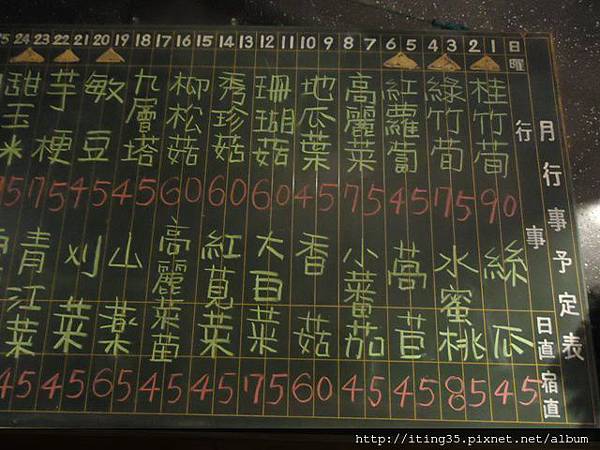 月行事予定表
日曜 1 2 3 4 5 6 7 8 9 10 11 12 13 14 15 16 17 18 19 20 21 22 23 24 25
行事
日直
宿直
桂竹筍 90
綠竹筍 75
紅蘿蔔 45
高麗菜 75
地瓜葉 45
珊瑚菇 60
秀珍菇 60
柳松菇 60
九層塔 45
敏豆 45
芋梗 75
甜玉米
絲瓜 45
水蜜桃 85
萵苣 45
小蕃茄 45
香菇 60
大白菜 75
紅莧菜 45
高麗菜苗 45
山藥 65
刈菜 45
青江菜 45
http://iting35.pixnet.net/album